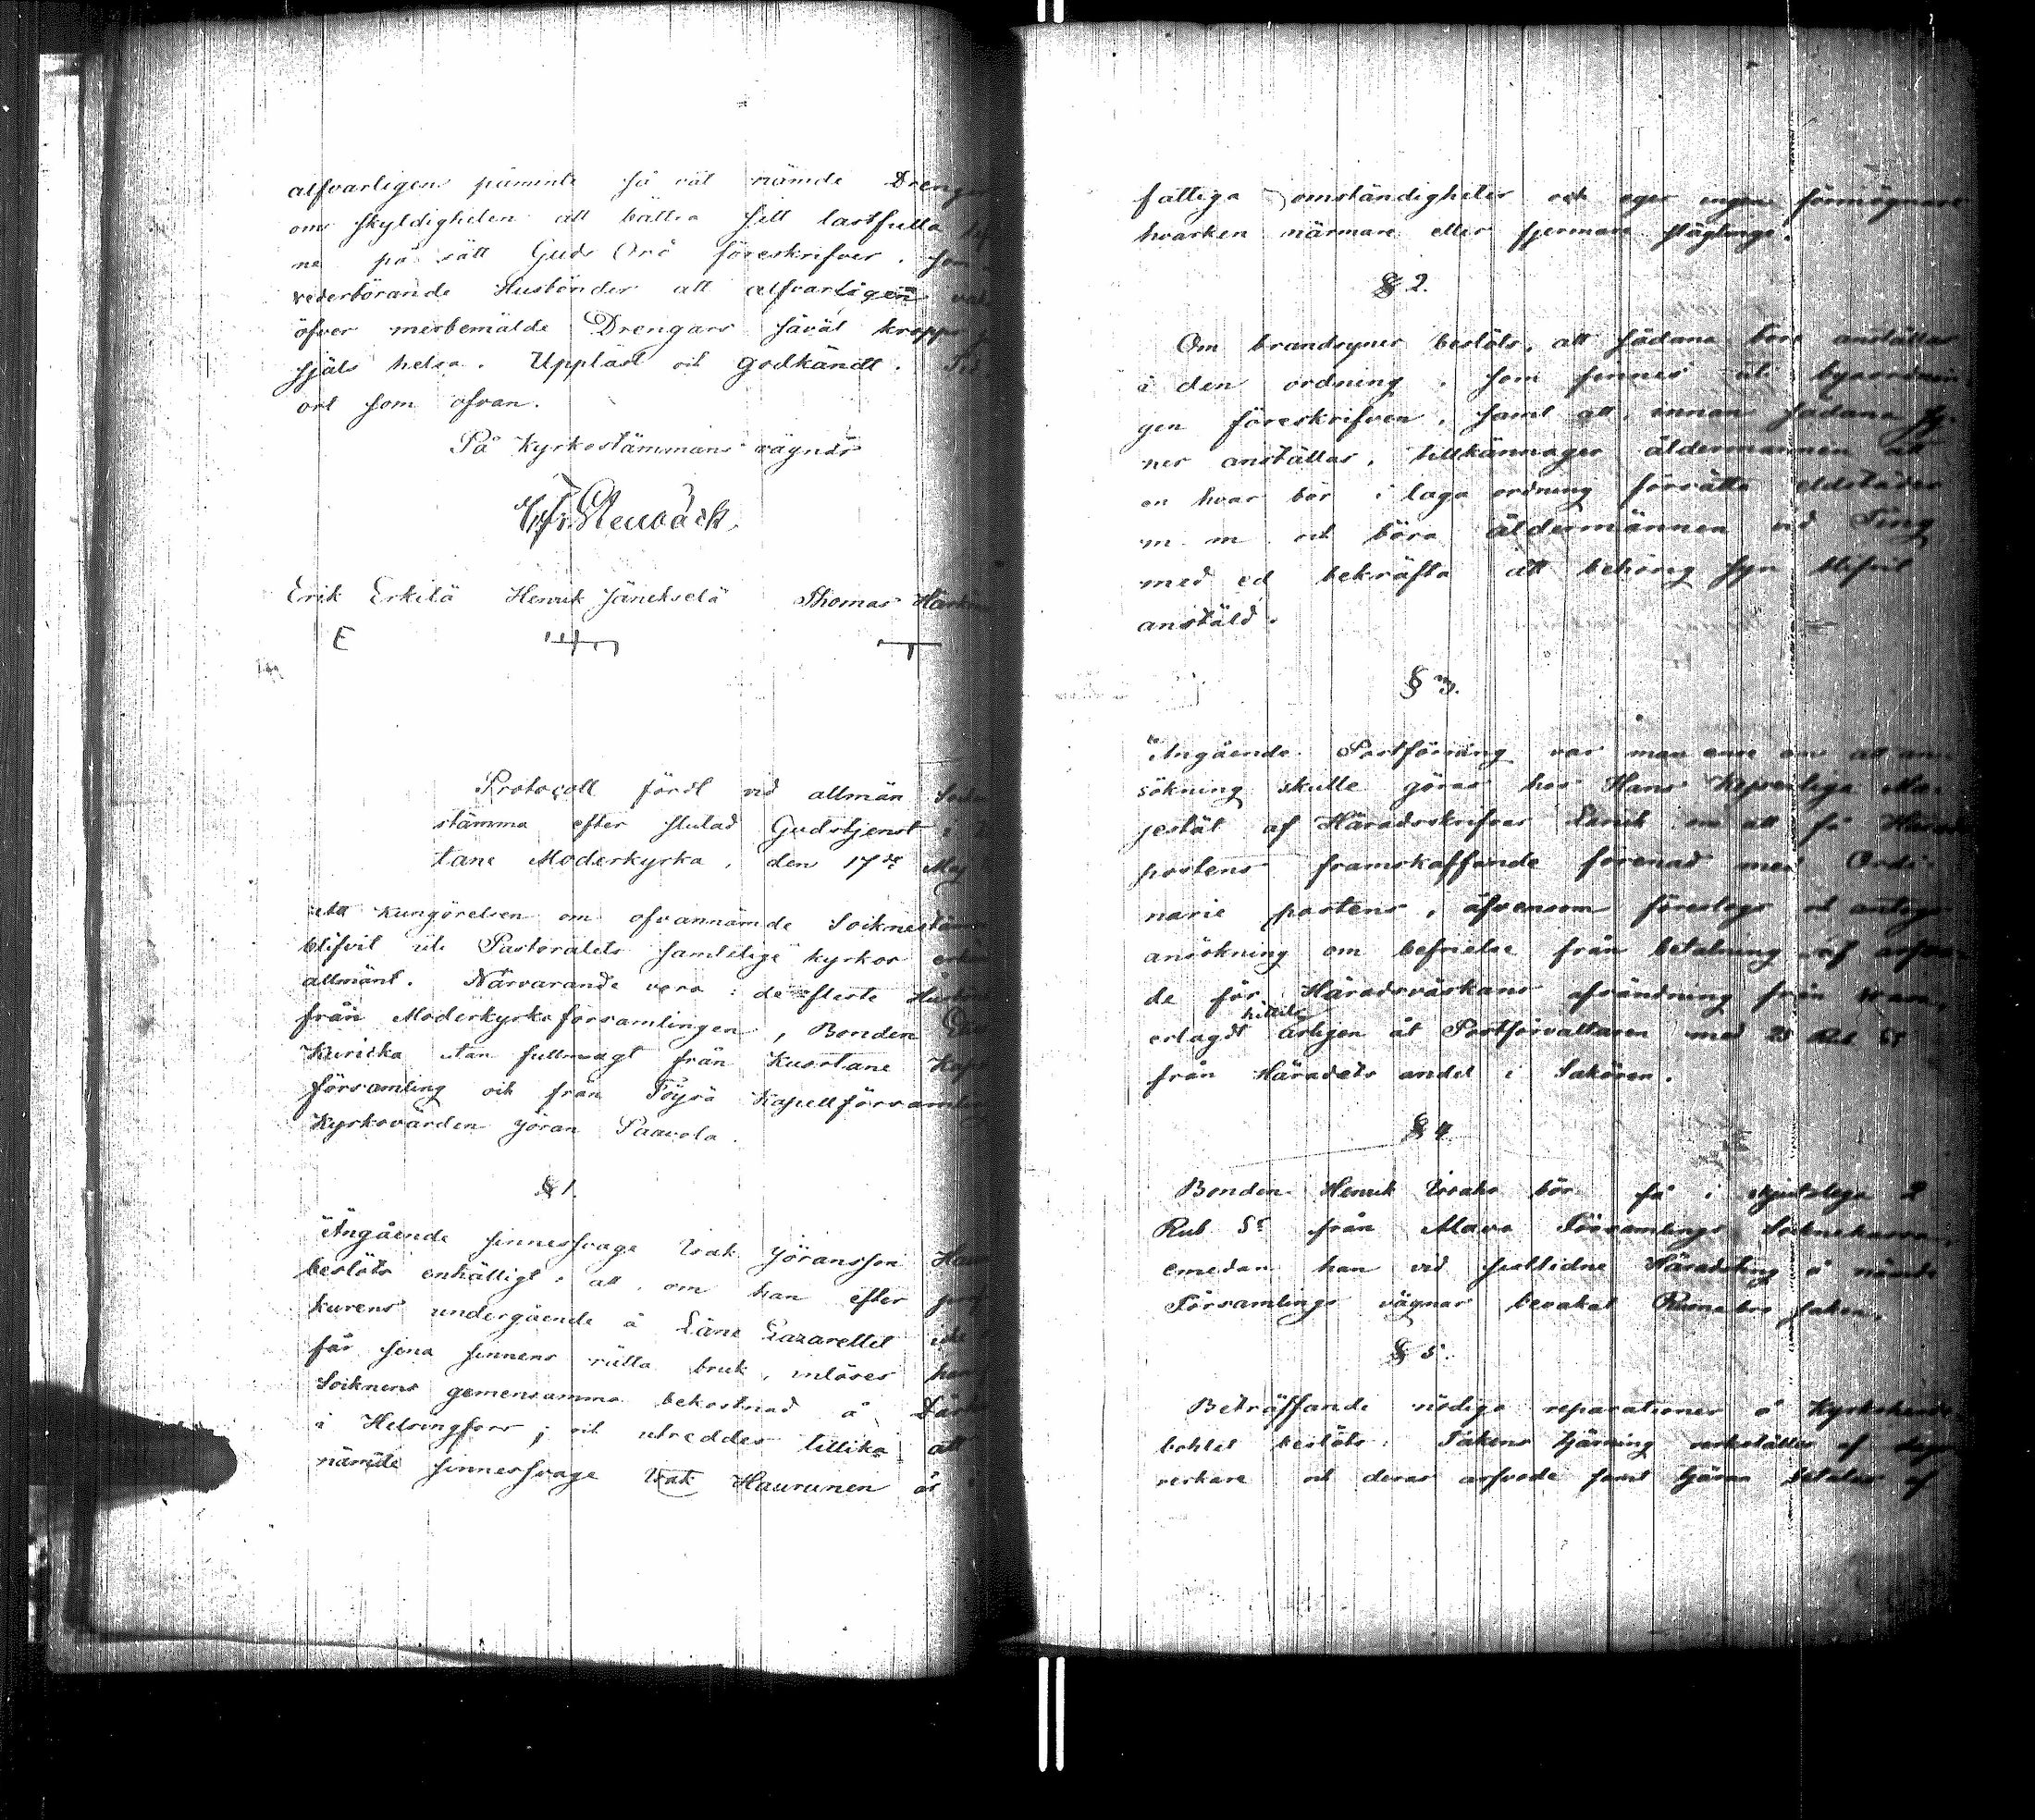 alfvarligen påminte så väl nämde Drengar
om skyldigheten att bättra sitt lastfulla
ne på sätt Guds Ord föreskrifver, som
vederbörande Husbönder att alfvarligen
öfver merbemälde Drengars såväl kropps
själs helsa. Uppläst och godkändt.
ort som ofvan.
På Kyrkostämmans vägnar
Stenbäck.
Erik Erkilä Henrik Jänekselä Thomas
E
Protocoll fördt vid allmän
stämma efter slutad Gudstjenst i
tane Moderkyrka, den 17de Maj
att Kungörelsen om ofvannämde Socknestäm
blifvit uti Pastoratets samtelige kyrkor
allmänt. Närvarande voro: de fleste
från Moderkyrkoförsamlingen, Bonden
Kuricka utan fullmagt från Kuortane
församling och från Töysä Kapellförsamling
Kyrkovärden Jöran Paavola.
§ 1.
Angående sinnessvage Isak Jöransson
beslöts enhälligt: att, om han efter
kurens undergående å Läne Lazarettet
får sina sinnens rätta bruk, inlöses han
Socknens gemensamma bekostnad å
i Helsingfors; och utreddes tillika att
nämde sinnessvage Isak Haurunen är
fattiga omständigheter och eger ingen förmögnare
hvarken närmare eller fjermare släglinge.
§ 2.
Om brandsyner beslöts, att sådana böra anställas
i den ordning, som finnes uti byaordnin
gen föreskrifven, samt att, innan sådana sy-
ner anställas, tillkännager åldermannen att
en hvar bör i laga ordning försätta eldstäder
m. m. och böra åldermännen vid Ting
med ed bekräfta att behörig syn blifvit
anstäld.
§ 3.
Angående Postföring var man ense om att an-
sökning skulle göras hos Hans Kejserliga Ma-
jestät af Häradsskrifvar om att få Härads
postens framskaffande förenad med Ordi-
narie postens, äfvensom föreslogs och antogs
ansökning om befrielse från betalning af arfvo-
de för Häradsväskans afsändning från Wasa,
hittils
erlagdt årligen åt Postförvaltaren med 25 Rub. Sr
från Häradets andel i Sakören.
§ 4.
Bonden Henrik Isaho bör få i skjutslega 2
Rub Sr från Alavo Församlings Socknekassa,
emedan han vid sistlidne Häradsting å nämde
Församlings vägnar bevakat saken.
§ 5.
Beträffande nödiga reparationer å Kyrkoherde
bohlet beslöts: Takens tjärning verkställes af dags
verkare och deras arfvode samt tjäran betalas af